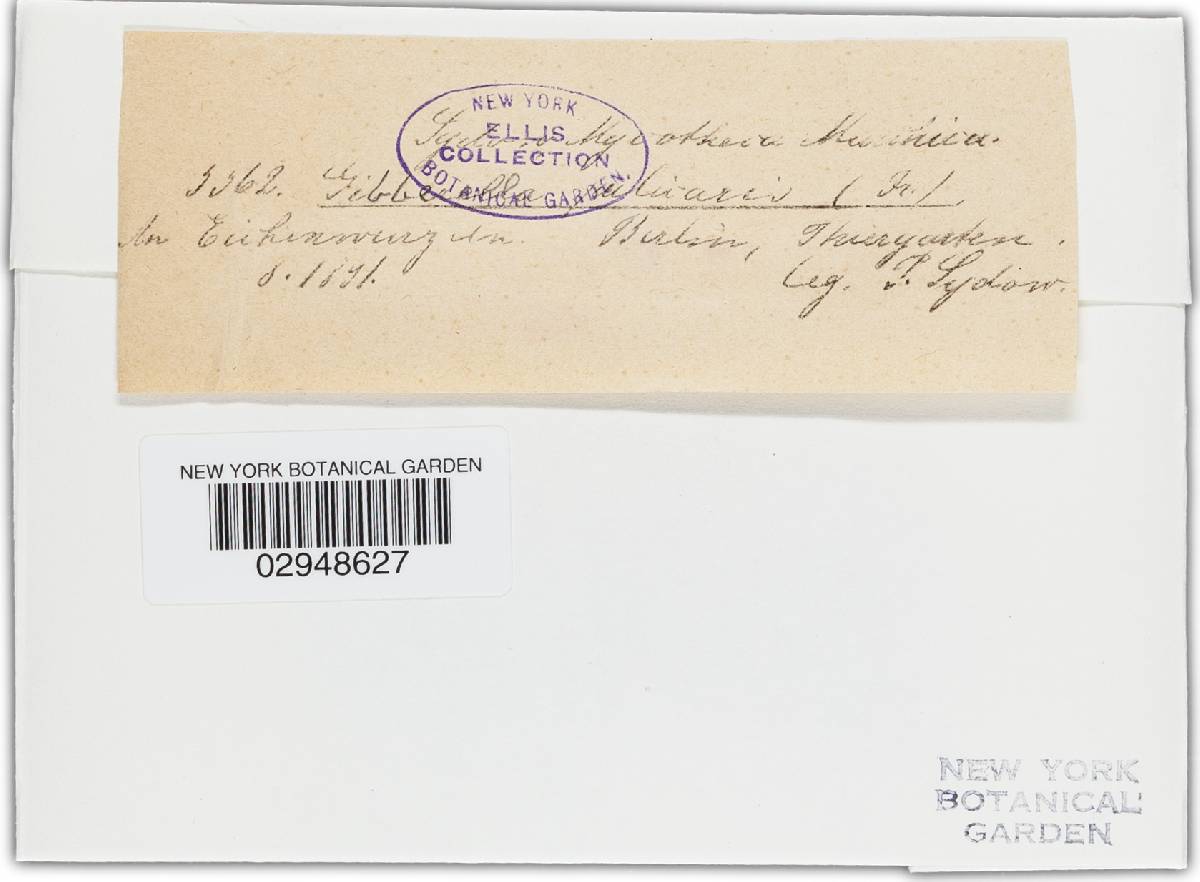 NEW YORK
ELLIS
COLLECTION
BOTANICAL GARDEN.
Sydow, Mycotheca Marchica.
3362. Gibberella pulicaris (Fr.)
An Eichenwurzeln. Berlin, Thiergarten.
8. 1891. leg. P. Sydow.
NEW YORK BOTANICAL GARDEN
02948627
NEW YORK
BOTANICAL
GARDEN